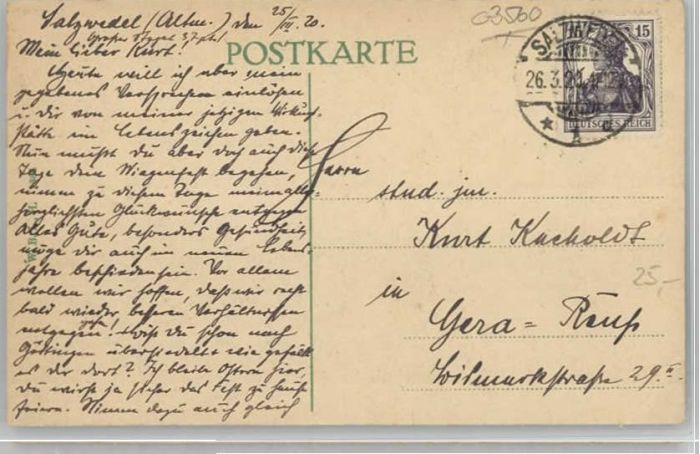 Salzwedel (Altm.) den 25/III. 20.
(Große Stoppel 37 pt.)
Mein lieber Kurt!
Heute will ich aber mein
gegebenes Versprechen einlösen
u. dir von meiner jetzigen Wirkungs-
stätte ein Lebenszeichen geben.
Nun mußt du aber doch auch diese
Tage dein Wiegenfest begehen,
nimm zu diesem Tage meine aller-
herzlichsten Glückwünsche entgegen
Alles Gute, besonders Gesundheit
möge dir auch im neuen Lebens-
jahre beschieden sein. Vor allem
wollen wir hoffen, daß wir recht
bald wieder besseren Verhältnissen
entgegen gehen! Bist du schon nach
Göttingen übersiedelt u. wie gefällt
es dir dort? Ich bleibe Ostern hier,
du wirst ja sicher das Fest zu Hause
feiern. Nimm dazu auch gleich
POSTKARTE
G3560
SALZWEDEL
26.3.20
* A c
15
DEUTSCHES REICH
Herrn
stud. jur.
Kurt Kacholdt
in
Gera=Reuß
Bismarckstraße 29 II
25,-